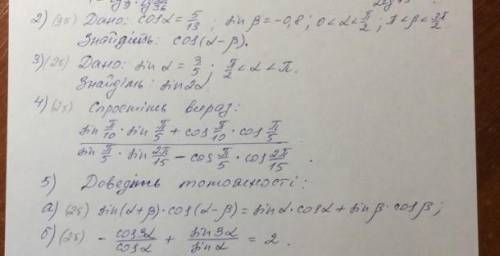 2) (3б) Дано: cosα = 5/13; sin β = -0,8; 0<α<π/2; π<β<3π/2
Знайдіть: cos(α-β).
3) (2б) Дано: sin α = 3/5; π/2 < α < π.
Знайдіть: sin2α.
4) (2б) Спростіть вираз:
(sin π/10 · sin π/5 + cos π/10 · cos π/5) / (sin π/5 · sin 2π/15 - cos π/5 · cos 2π/15).
5) Доведіть тотожності:
а) (2б) sin(α+β)·cos(α-β) = sinα·cosα + sinβ·cosβ;
б) (2б) - cos3α/cosα + sin3α/sinα = 2.